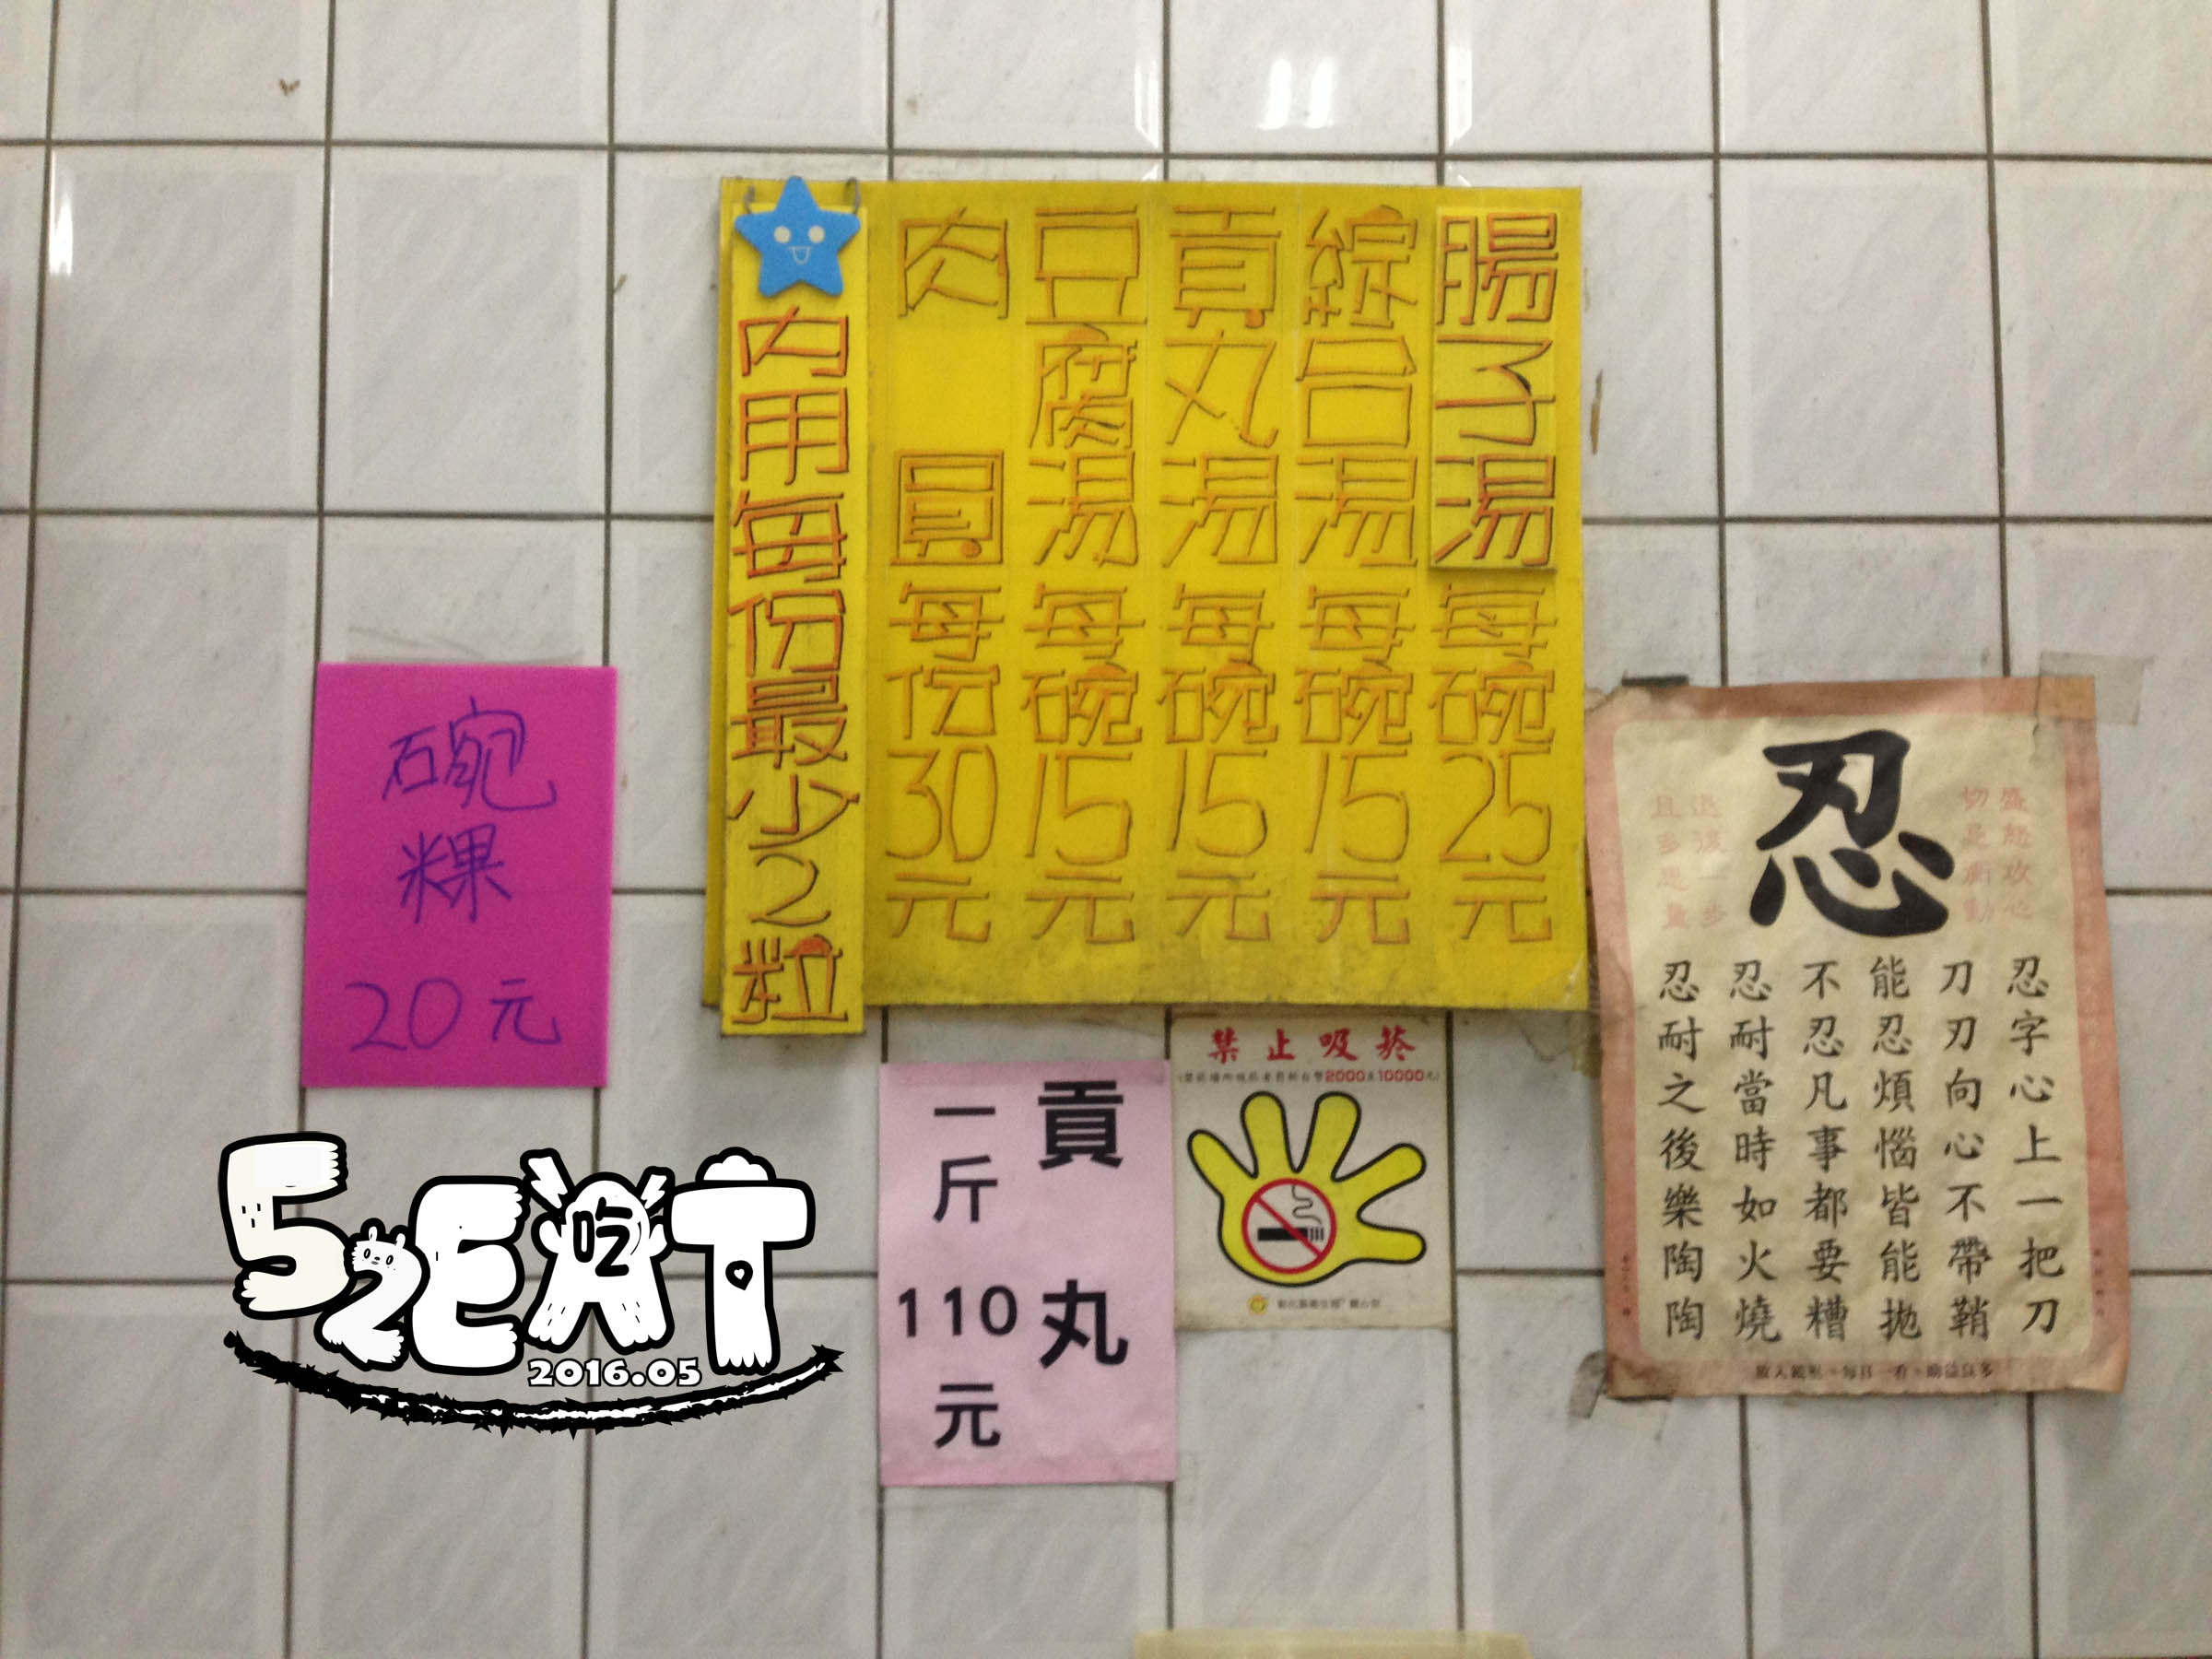 腸子湯每碗25元
綜合湯每碗15元
貢丸湯每碗15元
豆腐湯每碗15元
肉圓每份30元
內用每份最少2粒
碗粿
20元
貢丸
一斤110元
禁止吸菸
忍
退後一步
忍字心上一把刀
刀刃向心不帶鞘
能忍煩惱皆能拋
不忍凡事都要糟
忍耐當時如火燒
忍耐之後樂陶陶
52EAT
吃
2016.05